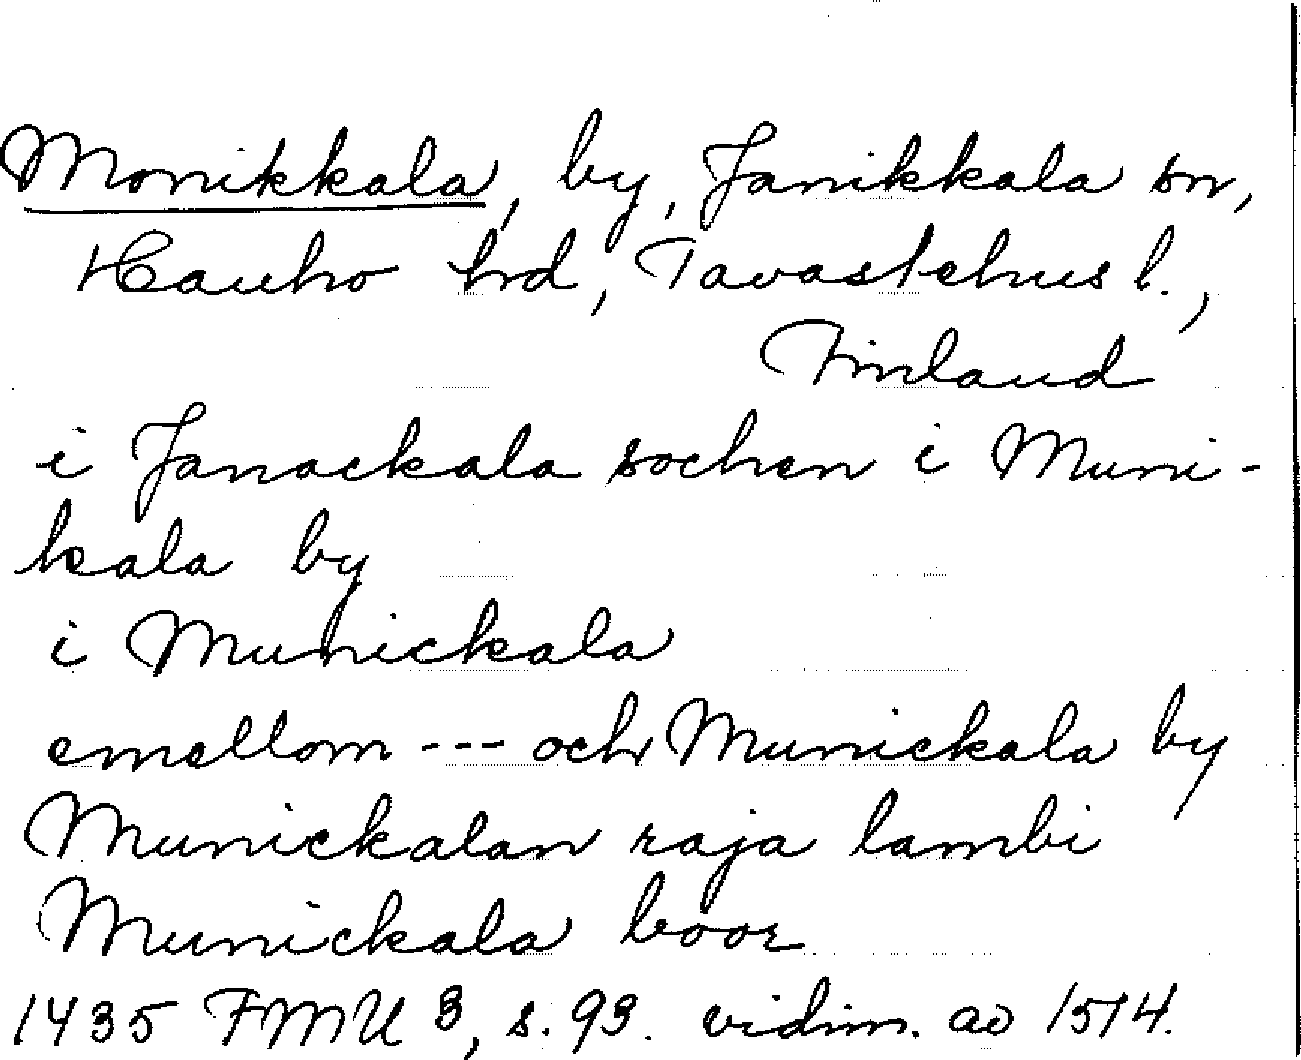 Monikkala, by, Janikkala sn,
Hauho hrd, Tavastehus l.,
Finland
i Janackala sochen i Muni-
kala by
i Munickala
emellom --- och Munickala by
Munickalan raja lambi
Munickala boor
1435 FMU 3, s. 93. vidim. ao 1514.